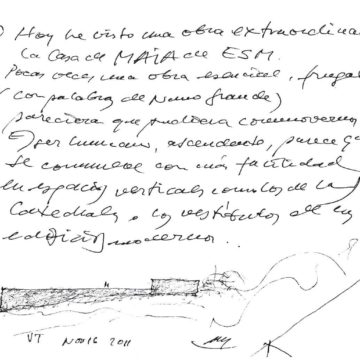 Hoy he visto una obra extraordinar
La Casa de MAIA de ESM.
Pocas veces una obra esencial, frugal
(con palabra de Nuno Grande)
pareciera que pudiera conmovernos
El ser humano, ascendente, parece q
se conmueve con más facilidad
en espacios verticales como los de la
Catedrales o los vestíbulos de los
edificios modernos...
VT NOV 16 2011